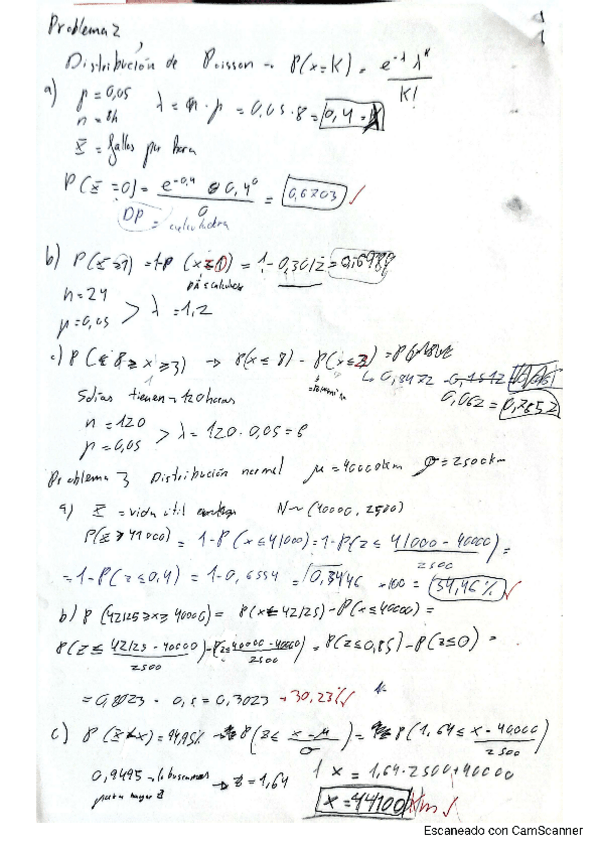 Problema 2
Distribución de Poisson → P(x=K) = e^-λ λ^K / K!
a) p = 0,05
n = 8h
λ = n · p = 0,05 · 8 = 0,4
X = fallos por hora
P(X=0) = e^-0,4 · 0,4^0 / 0 = 0,6703 ✓
b) P(X≥1) = 1-P(x≤0) = 1-0,3012 = 0,6988
n = 24
p = 0,05 > λ = 1,2
c) P(≤8 ≥ x ≥ 3) → P(x≤8) - P(x≤2) =
0,8472
0,062 = 0,7852
5 días tienen → 120 horas
n = 120
p = 0,05 > λ = 120 · 0,05 = 6
Problema 3 Distribución normal μ = 40000km σ = 2500km
a) X = vida útil N~(40000, 2500)
P(X≥41000) = 1-P(x≤41000) = 1-P(z≤ 41000-40000 / 2500) =
= 1-P(z≤0,4) = 1-0,6554 = 0,3446 ×100 = 34,46% ✓
b) P(42125≥x≥40000) = P(x≤42125) - P(x≤40000) =
P(z≤ 42125-40000 / 2500) - P(z≤ 40000-40000 / 2500) = P(z≤0,85) - P(z≤0) =
= 0,8023 - 0,5 = 0,3023 → 30,23% ✓
c) P(X<x) = 94,95% → P(z≤ x-μ / σ) = P(1,64 ≤ x-40000 / 2500)
0,9495 → lo buscamos → z = 1,64
x = 1,64 · 2500 + 40000
x = 44100 Km ✓
Escaneado con CamScanner